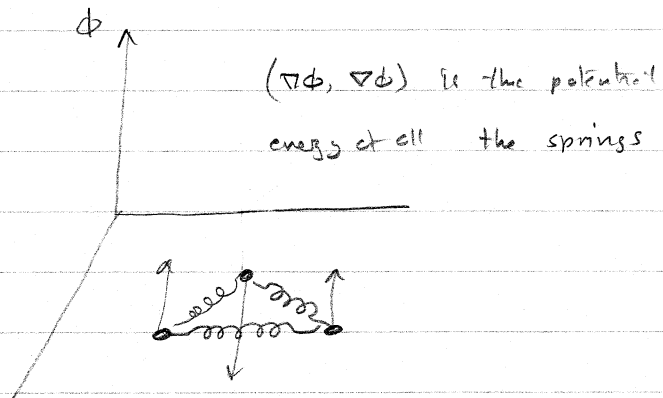 ϕ
(∇ϕ, ∇ϕ) is the potential
energy of all the springs